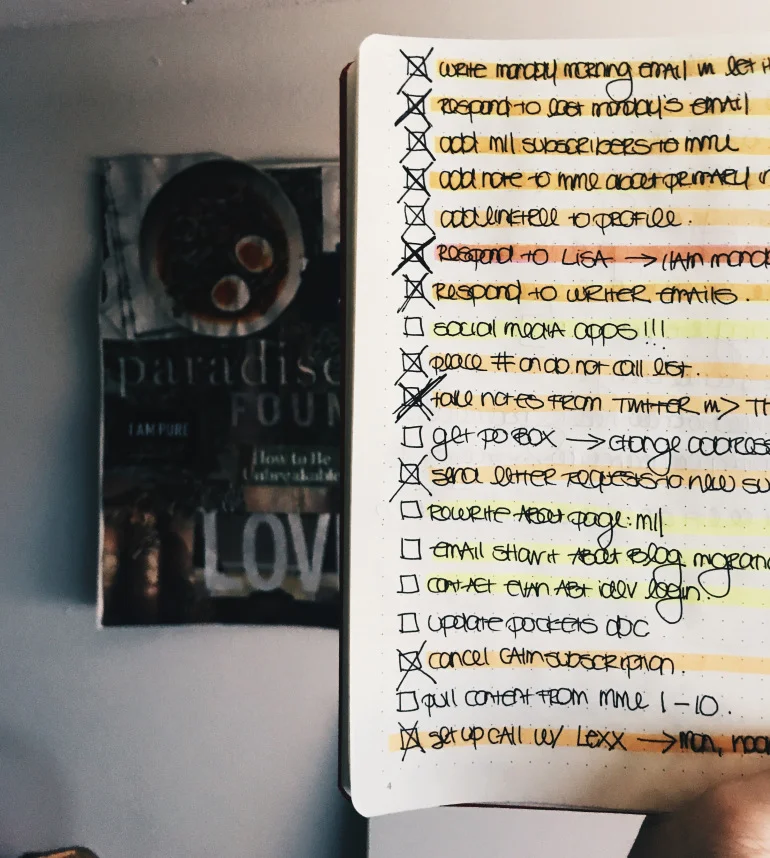 paradise
FOUN
I AM PURE
How to Be
Unbreakable
LOV
write monday morning email in let it
Respond to last monday's email
add mll subscribers to mme
add note to mme about primary in
add linktree to profile.
Respond to Lisa → 11am mond
Respond to writer emails.
social media apps !!!
place # on do not call list.
take notes from Twitter m> Th
get po Box → change address
send letter requests to new su
rewrite about page: mll
email about blog migrat
contact evan abt login.
update pockets doc
cancel subscription.
pull content from mme 1-10.
set up call w/ Lexx → mon, noo